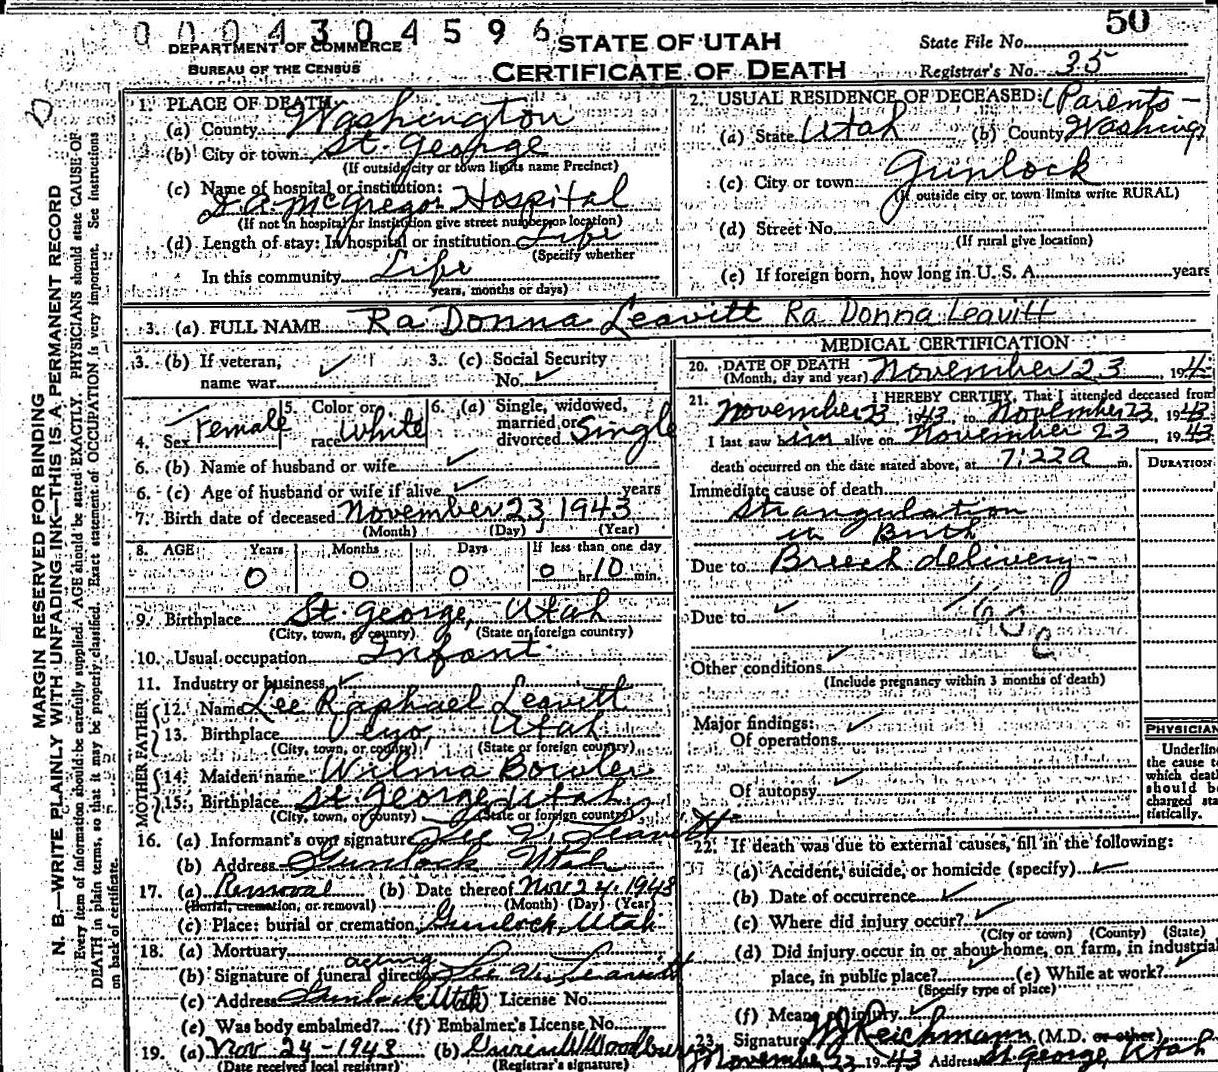 0004304596
50
DEPARTMENT OF COMMERCE
BUREAU OF THE CENSUS
STATE OF UTAH
CERTIFICATE OF DEATH
State File No.
Registrar's No. 35
MARGIN RESERVED FOR BINDING
N. B.—WRITE PLAINLY WITH UNFADING INK—THIS IS A PERMANENT RECORD
Every item of information should be carefully supplied. AGE should be stated EXACTLY. PHYSICIANS should state CAUSE OF
DEATH in plain terms, so that it may be properly classified. Exact statement of OCCUPATION is very important. See instructions
on back of certificate.
1. PLACE OF DEATH
(a) County Washington
(b) City or town St. George
(If outside city or town limits name Precinct)
(c) Name of hospital or institution:
McGregor Hospital
(If not in hospital or institution give street number or location)
(d) Length of stay: In hospital or institution Life
(Specify whether
In this community Life
years, months or days)
2. USUAL RESIDENCE OF DECEASED: (Parents-
(a) State Utah (b) County Washing
(c) City or town Gunlock
(If outside city or town limits write RURAL)
(d) Street No.
(If rural give location)
(e) If foreign born, how long in U. S. A. years
3. (a) FULL NAME Ra Donna Leavitt Ra Donna Leavitt
3. (b) If veteran,
name war
3. (c) Social Security
No.
4. Sex Female
5. Color or
race White
6. (a) Single, widowed,
married or
divorced Single
6. (b) Name of husband or wife
6. (c) Age of husband or wife if alive years
7. Birth date of deceased November 23, 1943
(Month) (Day) (Year)
8. AGE Years Months Days If less than one day
0 0 0 0 hr. 10 min.
9. Birthplace St. George, Utah
(City, town, or county) (State or foreign country)
10. Usual occupation Infant
11. Industry or business
FATHER
12. Name Lee Raphael Leavitt
13. Birthplace Veyo, Utah
(City, town, or county) (State or foreign country)
MOTHER
14. Maiden name Wilma Bowler
15. Birthplace St. George, Utah
(City, town, or county) (State or foreign country)
16. (a) Informant's own signature Lee Leavitt
(b) Address Gunlock Utah
17. (a) Removal (b) Date thereof Nov 24, 1943
(Burial, cremation, or removal) (Month) (Day) (Year)
(c) Place: burial or cremation Gunlock, Utah
18. (a) Mortuary
acting
(b) Signature of funeral director Lee Leavitt
(c) Address Gunlock Utah License No.
(e) Was body embalmed? (f) Embalmer's License No.
19. (a) Nov 24-1943 (b) Woodbury
(Date received local registrar) (Registrar's signature)
MEDICAL CERTIFICATION
20. DATE OF DEATH
(Month, day and year) November 23, 194
21. I HEREBY CERTIFY, That I attended deceased from
November 23, 1943 to November 23, 1943
I last saw him alive on November 23, 1943
death occurred on the date stated above, at 7:22a m.
DURATION
Immediate cause of death
Strangulation
in Birth
Due to Breech delivery-
Due to
Other conditions
(Include pregnancy within 3 months of death)
Major findings:
Of operations
Of autopsy
PHYSICIAN
Underline
the cause to
which death
should be
charged sta
tistically.
22. If death was due to external causes, fill in the following:
(a) Accident, suicide, or homicide (specify)
(b) Date of occurrence
(c) Where did injury occur?
(City or town) (County) (State)
(d) Did injury occur in or about home, on farm, in industrial
place, in public place? (e) While at work?
(Specify type of place)
(f) Means of injury
23. Signature Reichmann (M.D. or other)
November 23 1943 Address St George, Utah